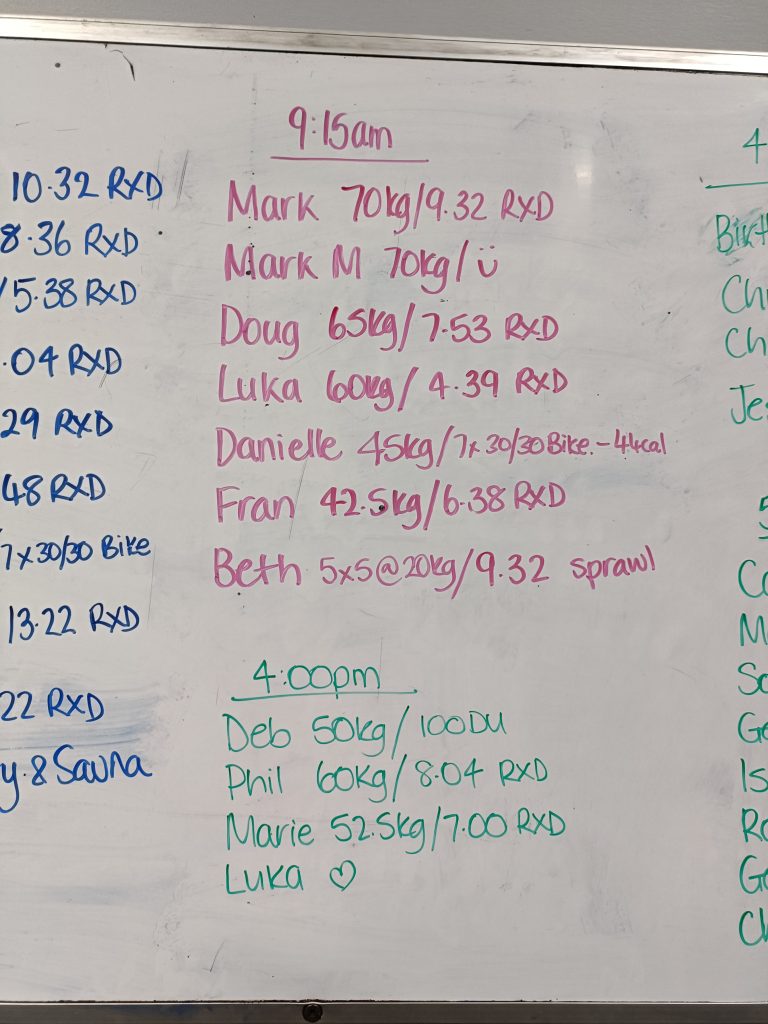 10.32 RXD
8.36 RXD
/5.38 RXD
.04 RXD
29 RXD
48 RXD
7x30/30 Bike
13.22 RXD
22 RXD
y & Sauna
9:15am
Mark 70kg/9.32 RXD
Mark M 70kg/ü
Doug 65kg/7.53 RXD
Luka 60kg/4.39 RXD
Danielle 45kg/7x30/30 Bike.-44cal
Fran 42.5kg/6.38 RXD
Beth 5x5@20kg/9.32 sprawl
4:00pm
Deb 50kg/100DU
Phil 60kg/8.04 RXD
Marie 52.5kg/7.00 RXD
Luka ♡
4
Birth
Ch
Ch
Je
5
Co
M
So
Ge
Is
Ro
Ge
Ch